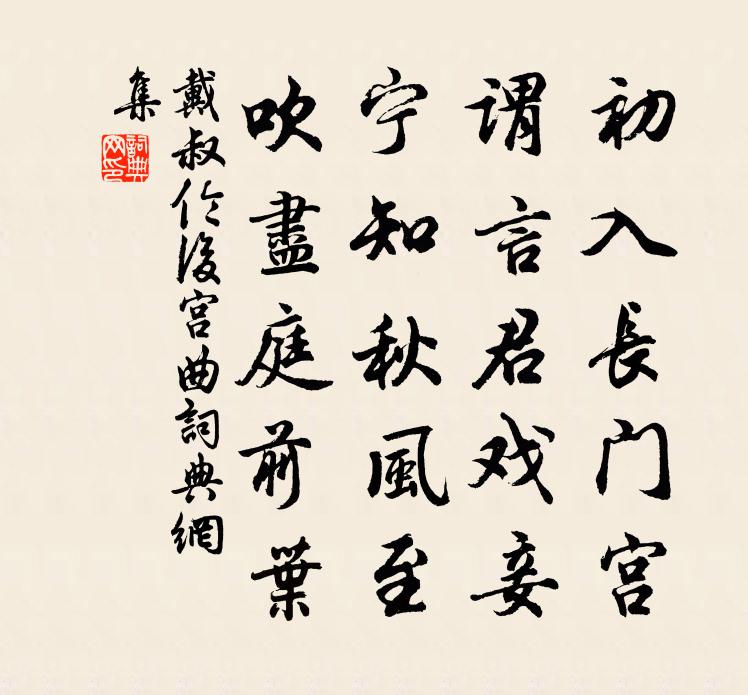 初入長门宫
谓言君戏妾
宁知秋風至
吹盡庭前葉
戴叔伦後宫曲詞典網
集
詞典网印